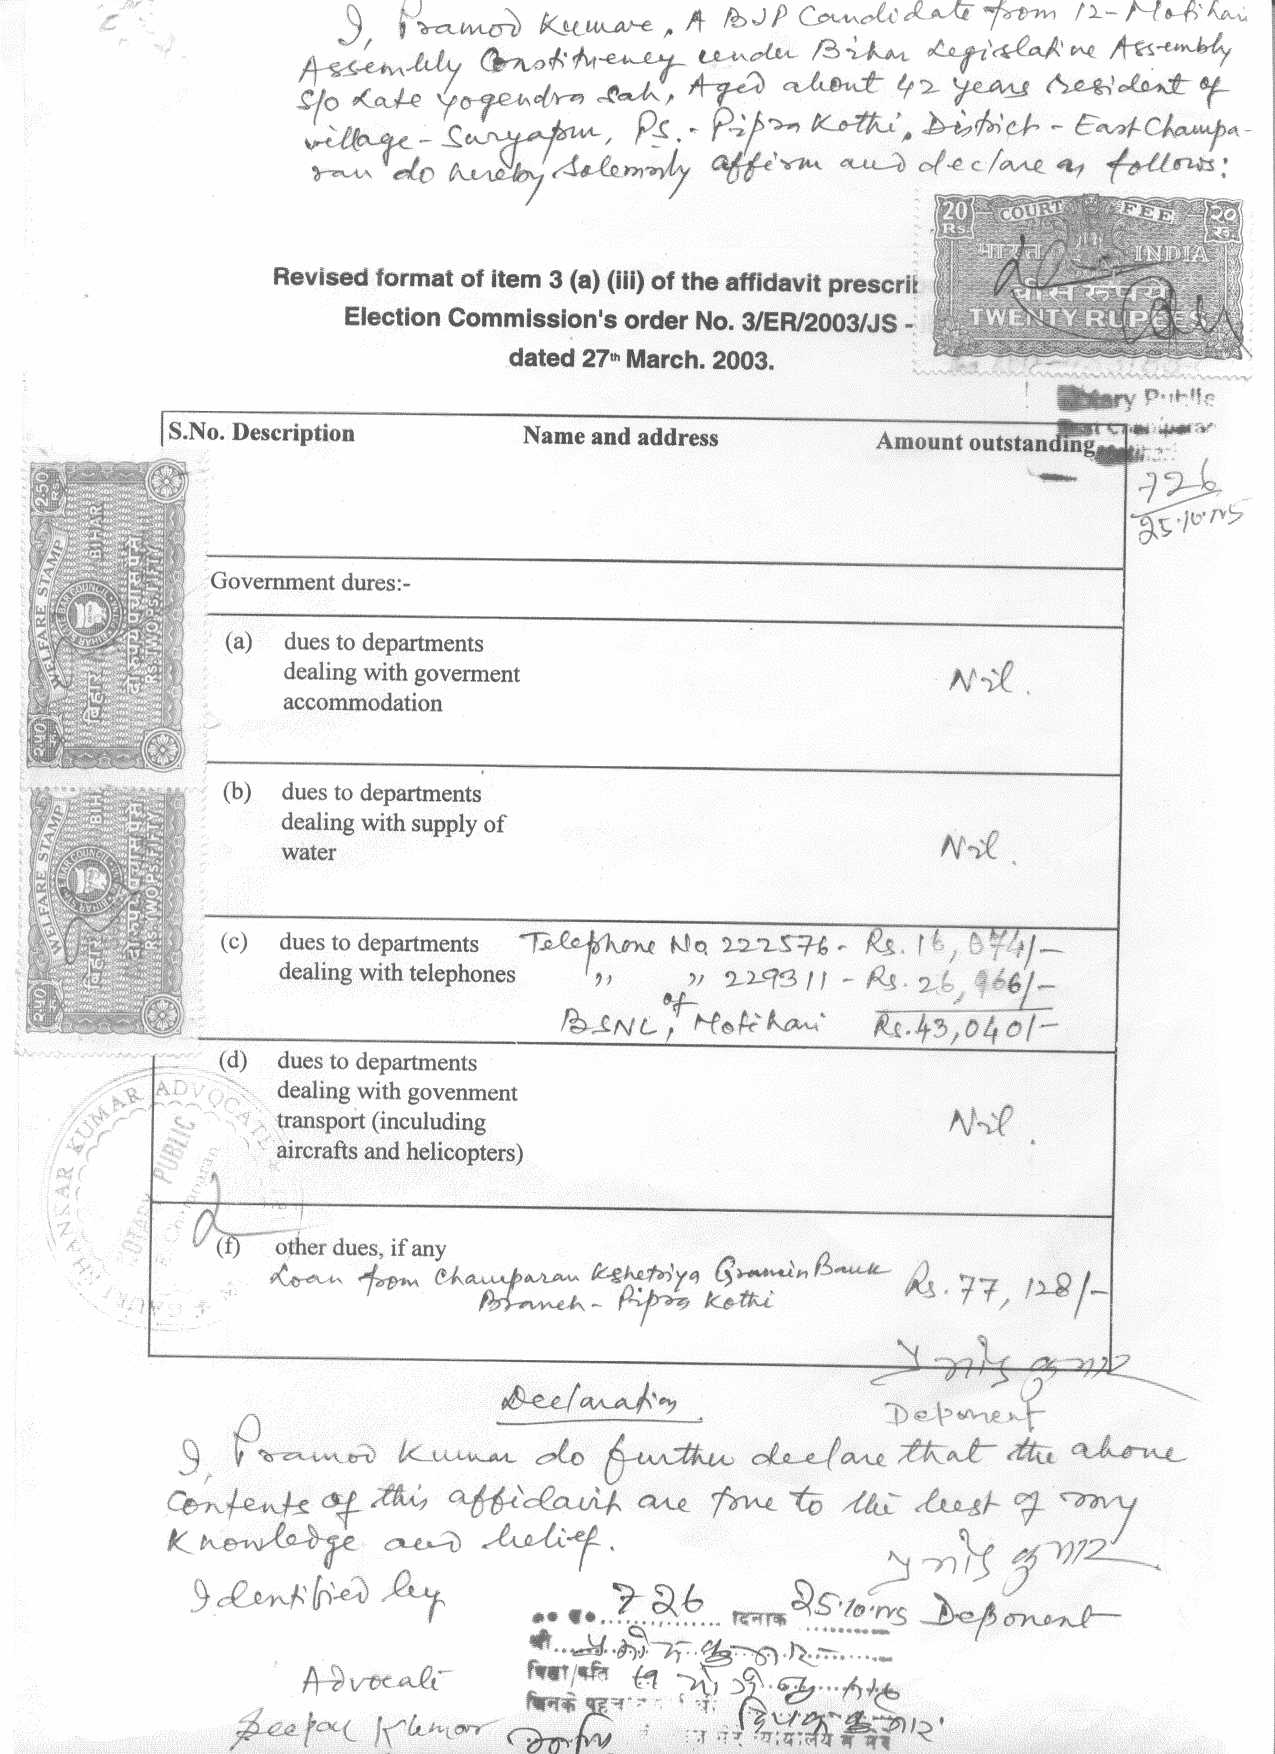 I, Pramod Kumar, A BJP Candidate from 12-Motihari
Assembly Constituency under Bihar Legislative Assembly
S/o Late Yogendra Sah, Aged about 42 years resident of
village - Suryapur, P.S. - Pipra Kothi, District - East Champa-
ran do hereby solemnly affirm and declare as follows:
20 Rs. COURT FEE २० रु.
भारत INDIA
बीस रूपये
TWENTY RUPEES
Revised format of item 3 (a) (iii) of the affidavit prescri
Election Commission's order No. 3/ER/2003/JS -
dated 27th March. 2003.
Notary Public
East Champaran
Motihari
726
25.10.05
S.No. Description Name and address Amount outstanding
Government dures:-
(a) dues to departments
dealing with goverment
accommodation
Nil.
(b) dues to departments
dealing with supply of
water
Nil.
(c) dues to departments Telephone No 222576 - Rs. 16,074/-
dealing with telephones ,, ,, 229311 - Rs. 26,966/-
of
BSNL, Motihari Rs. 43,040/-
(d) dues to departments
dealing with govenment
transport (inculuding
aircrafts and helicopters)
Nil.
(f) other dues, if any
Loan from Champaran Kshetriya Gramin Bank Rs. 77,128/-
Branch - Pipra Kothi
WELFARE STAMP
BIHAR
बिहार
BAR COUNCIL
दो रुपये पचास पैसे
RS.TWO PS.FIFTY
2.50 Rs
WELFARE STAMP
BIHAR
बिहार
BAR COUNCIL
RS.TWO PS.FIFTY
GAURI SHANKAR KUMAR ADVOCATE
NOTARY PUBLIC
E. Champaran
प्रमोद कुमार
Deponent
Declaration
I, Pramod Kumar do further declare that the above
contents of this affidavit are true to the best of my
knowledge and belief.
प्रमोद कुमार
Identified by
726 दिनांक 25.10.05 Deponent
श्री प्रमोद कुमार
पिता/पति
Advocate
जिनके पहचान
Deepak Kumar
दिपक कुमार